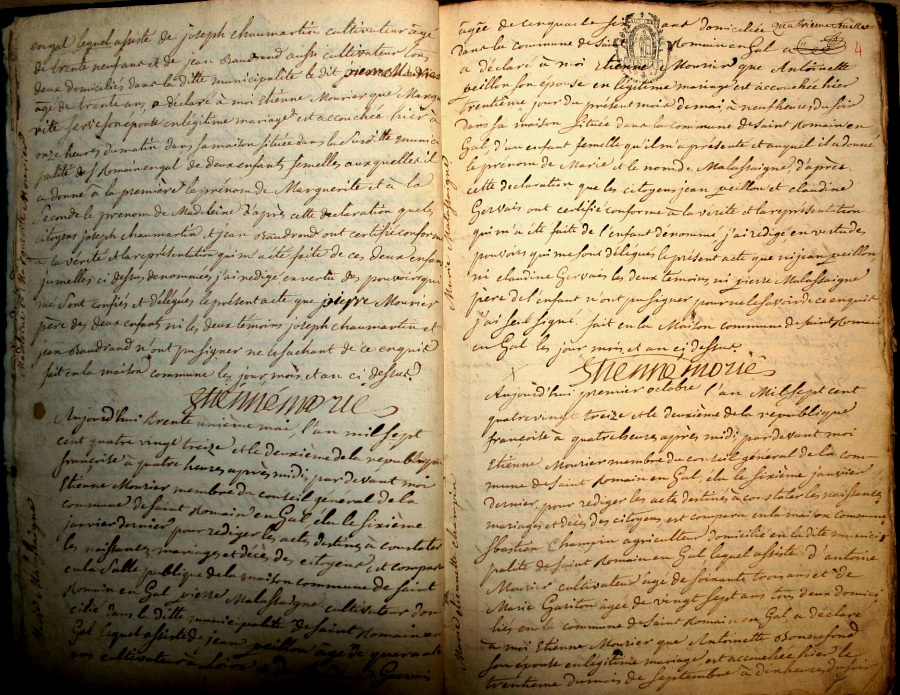 en gal lequel assisté de joseph chaumartin cultivateur âgé
de trente neuf ans et de jean Baudrand aussi cultivateur tous
deux domiciliés dans la ditte municipalité le dit pierre Mourier
âgé de trente ans a déclaré à moi Etiénne Mourier que Margue
rite serve son épouse en légitime mariage est accouchée hier à
onze heures du matin dans sa maison située dans la susditte munici
palité de St Romain en gal de deux enfants femelles auxquelles il
a donné à la première le prénom de Marguerite et à la
seconde le prénom de Madeleine D'après cette déclaration que les
citoyens joseph chaumartin et jean Baudrand ont certifié conforme
à la vérité et la représentation qui m'a été faite de ces deux enfans
jumelles ci dessus denommées j'ai redigé en vertu des pouvoirs qui
me sont confiés et délégués le présent acte que pierre Mourier
père des deux enfants ni les deux témoins joseph chaumartin et
jean Baudrand n'ont pu signer ne le sachant de ce enquit
fait en la maison commune les jour, mois et an ci dessus.
Etienne morié
Aujourd'hui trente unième mai, l'an mil sept
cent quatre vingt treize et le deuxième de la republique
françoise à quatre heures après midi, par devant moi
Etienne Mourier membre du conseil general de la
commune de saint Romain en Gal, élu le sixième
janvier dernier pour rediger les actes destinés à constater
les naissances, mariages et décès des citoyens est comparu
en la salle publique de la maison commune de saint
Romain en Gal, pierre Malassaigne cultivateur domi
cilié dans la ditte municipalité de saint Romain en
Gal lequel assisté de jean veillon âgé de quarante
ans cultivateur à Loire et de Gervais
Marie Malassaigne
âgée de cenquante six ans domiciliée quatrième feuillet
dans la commune de Saint Romain en Gal a 4
a déclaré à moi Etienne Mourier que Antoinette
veillon son épouse en légitime mariage est accouchée hier
trentième jour du présent mois de mai à neuf heures du soir
dans sa maison située dans la commune de saint Romain en
Gal, d'un enfant femelle qu'il m'a présenté et auquel il a donné
le prénom de Marie et le nom de Malassaigne, d'après
cette déclaration que les citoyens jean veillon et claudine
Gervais ont certifié conforme à la vérité et la représentation
qui m'a été faite de l'enfant dénommé j'ai rédigé en vertu des
pouvoirs qui me sont délégués le présent acte que ni jean veillon
ni claudine Gervais les deux témoins, ni pierre Malassaigne
père de l'enfant n'ont pu signer pour ne le savoir de ce enquit
j'ai seul signé, fait en la Maison commune de Saint Romain
en Gal les jour mois et an ci dessus.
Etienne morié
Aujourd'hui premier octobre l'an Mil sept cent
quatre vingt treize et le deuxième de la république
françoise à quatre heures après midi pardevant moi
Etienne Mourier membre du conseil général de la com-
mune de saint Romain en Gal, élu le sixième janvier
dernier, pour rediger les actes destinés à constater les naissances
mariages et décès des citoyens est comparu en la maison commune
Sbastién Champin agriculteur domicilié en la dite munici
palité de saint Romain en Gal lequel assisté d'antoine
Mourier cultivateur âgé de soixante trois ans et de
Marie Gariton âgée de vingt sept ans tous deux domici
liés en la commune de Saint Romain en Gal a déclaré
à moi Etienne Mourier que Antoinette Bonnefond
son épouse en légitime mariage est accouchée hier le
trentième du mois de septembre à dix heures du soir
Marie Malassaigne
Marie etiennette champin